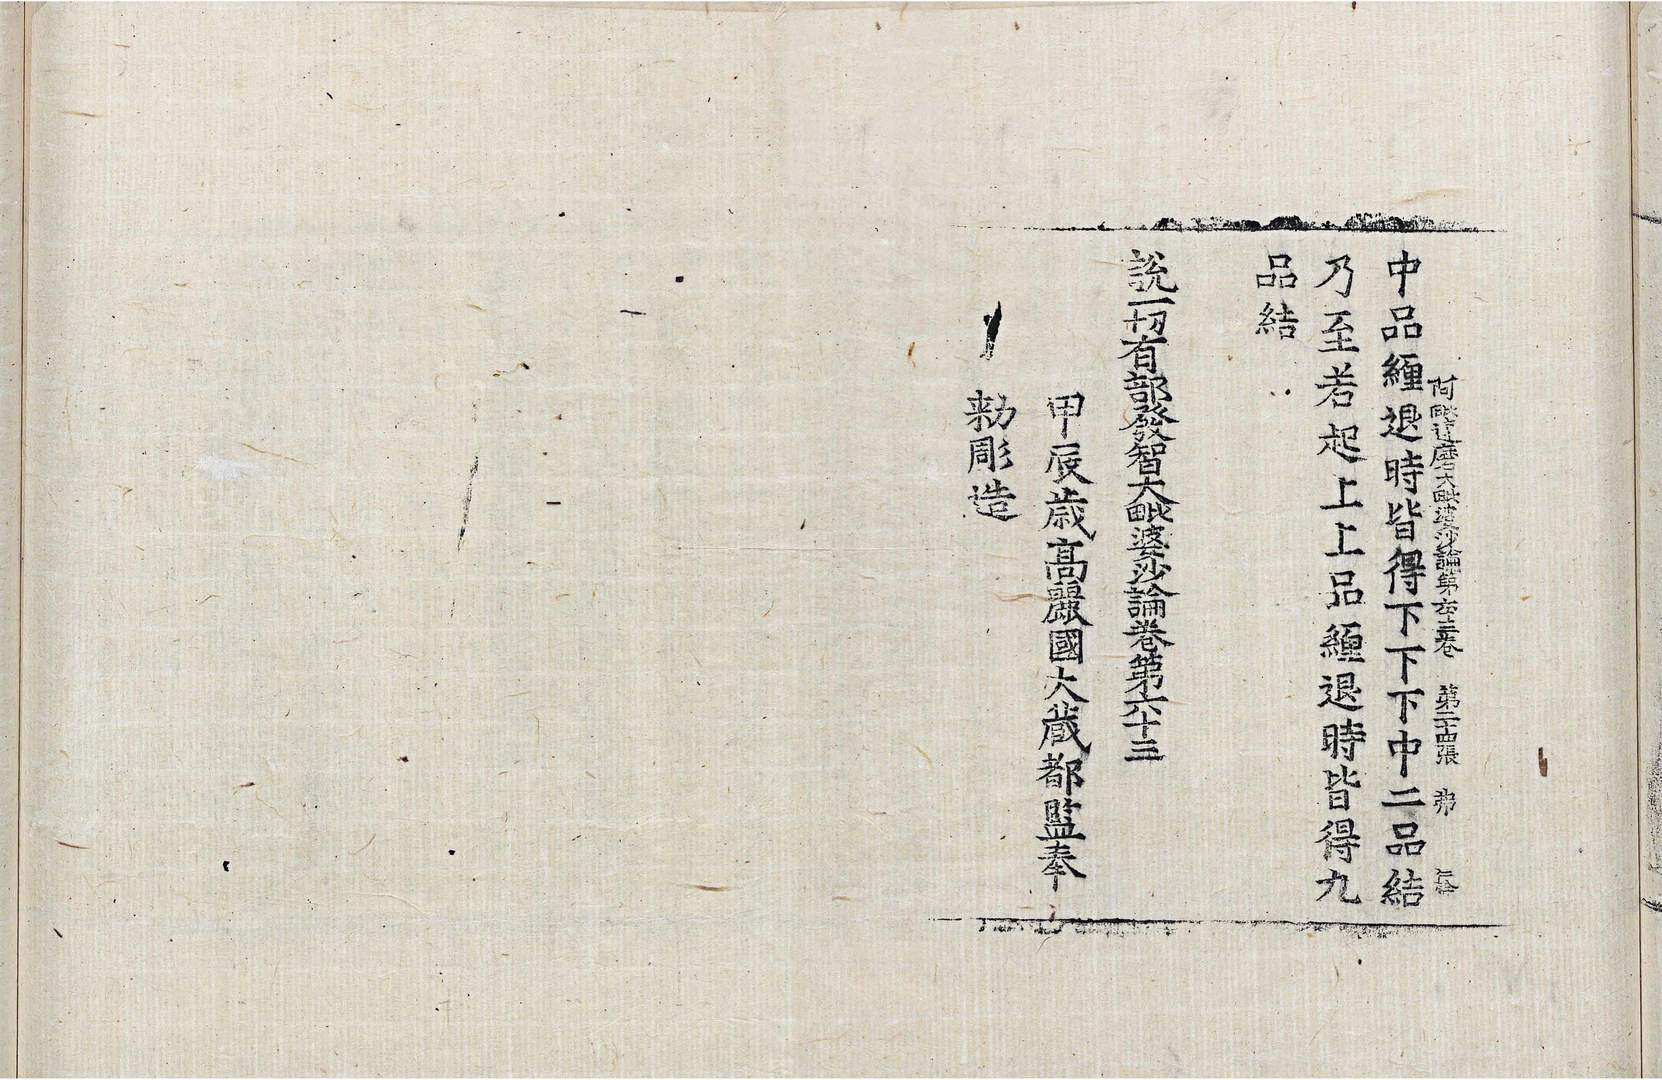 阿毗達磨大毗婆沙論第六十三卷 第二十四張 弗
中品纏退時皆得下下下中二品結
乃至若起上上品纏退時皆得九
品結
說一切有部發智大毗婆沙論卷第六十三
甲辰歲高麗國大藏都監奉
勑彫造